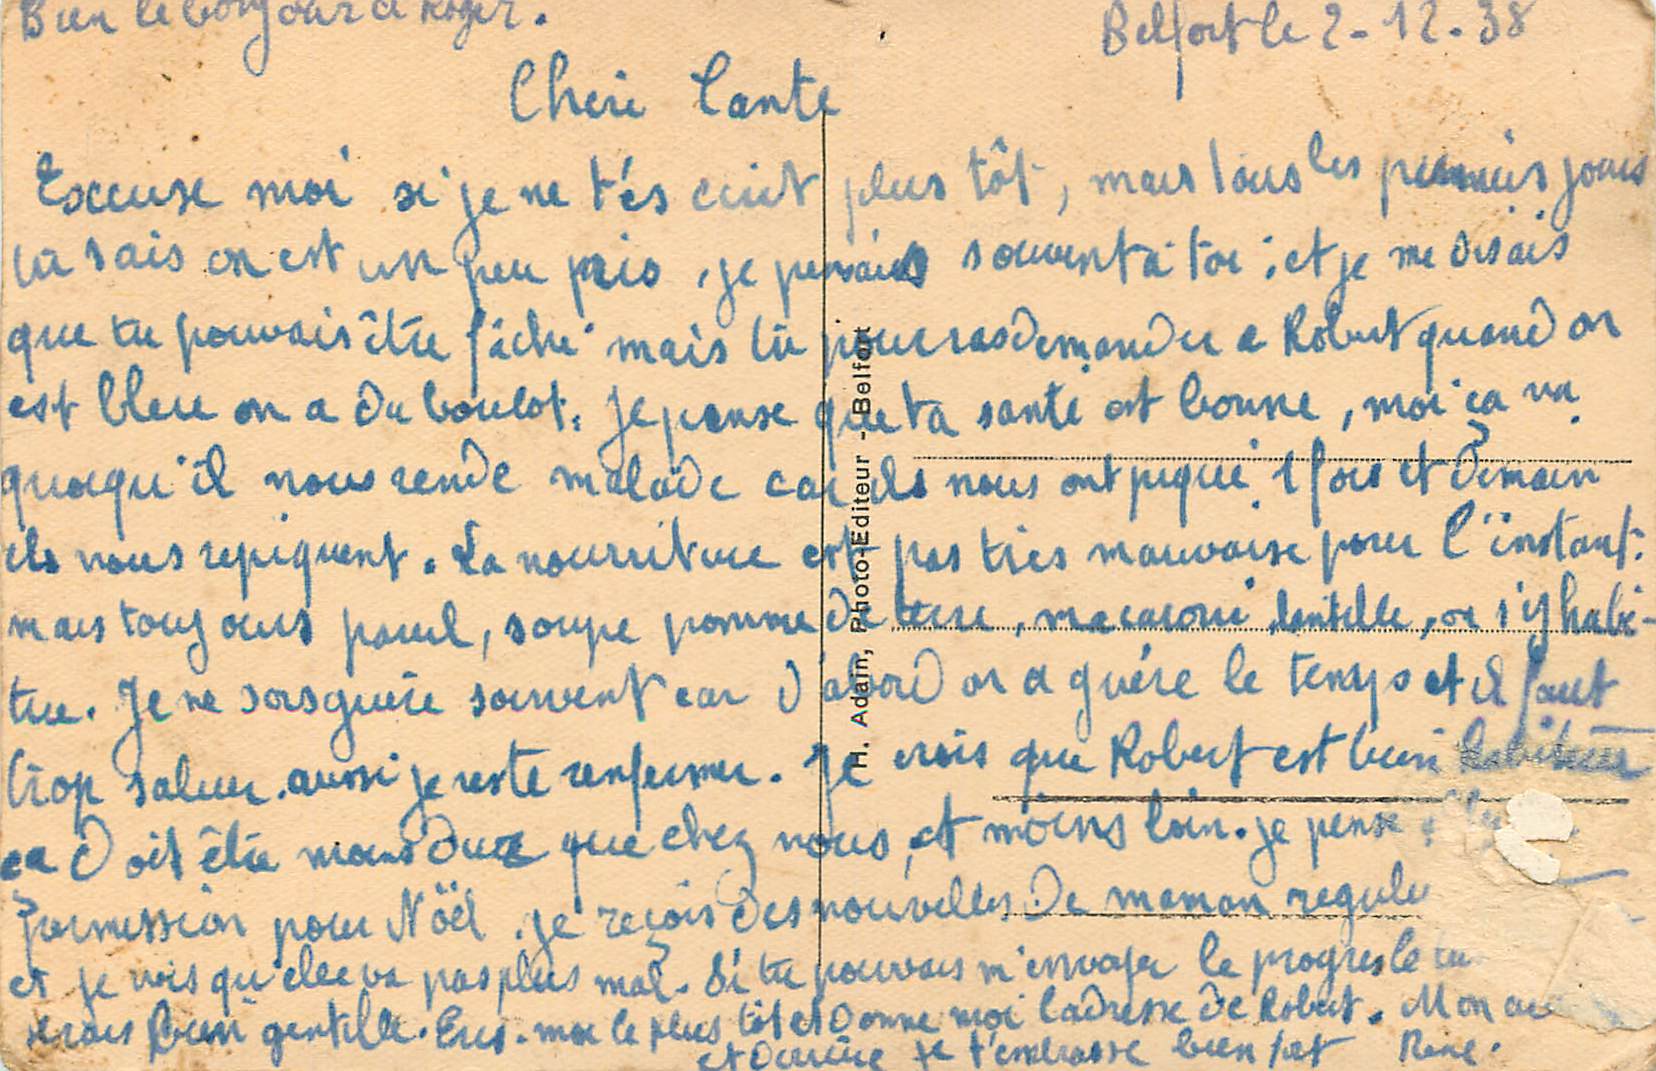 Bien le bonjour a Roger.
Belfort le 2-12-38
Cheri Tante
Excuse moi si je ne t'és ecrit plus tôt, mais tous les premiers jours
tu sais on est un peu pris, je pensais souvent à toi; et je me disais
que tu pouvais être fâché mais tu pourras demander a Robert quand on
est bleu on a du boulot. Je pense que ta santé est bonne, moi ça va
quoiqu'il nous rende malade car ils nous ont piqué 1 fois et demain
ils nous repiquent. La nourriture est pas très mauvaise pour l'instant.
mais toujours pareil, soupe pomme de terre, macaroni lentille, on s'y habi-
tue. Je ne sors guère souvent car d'abord on a guére le temps et il faut
trop saluer. aussi je reste renfermer. Je crois que Robert est bien habituer
ça doit être moins dure que chez nous, et moins loin. je pense
permission pour Nöel. je reçois des nouvelles de maman regulie
et je vois qu'elle va pas plus mal. Si tu pouvais m'envoyer le progres le tu
serais bien gentille. Ecris-moi le plus tôt et donne moi l'adresse de Robert. Mon
et derrière je t'embrasse bien fort René.
H. Adain, Photo-Editeur - Belfort